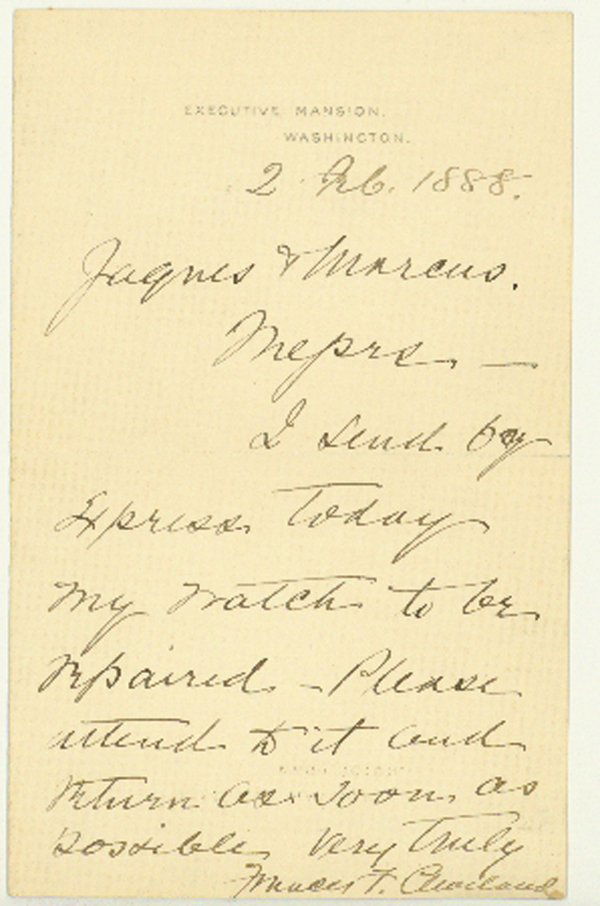 EXECUTIVE MANSION.
WASHINGTON.
2 Feb. 1888.
Jaques & Marcus.
Messrs —
I send by
Express today
my watch to be
repaired – Please
attend to it and
return as soon as
possible, Very truly
Frances F. Cleveland